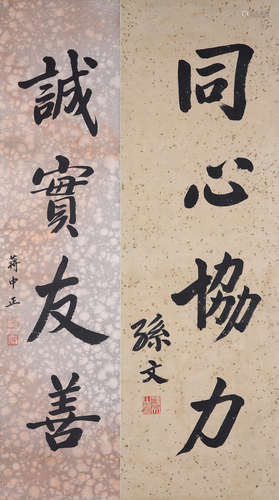 同心協力
孫文
誠實友善
蔣中正